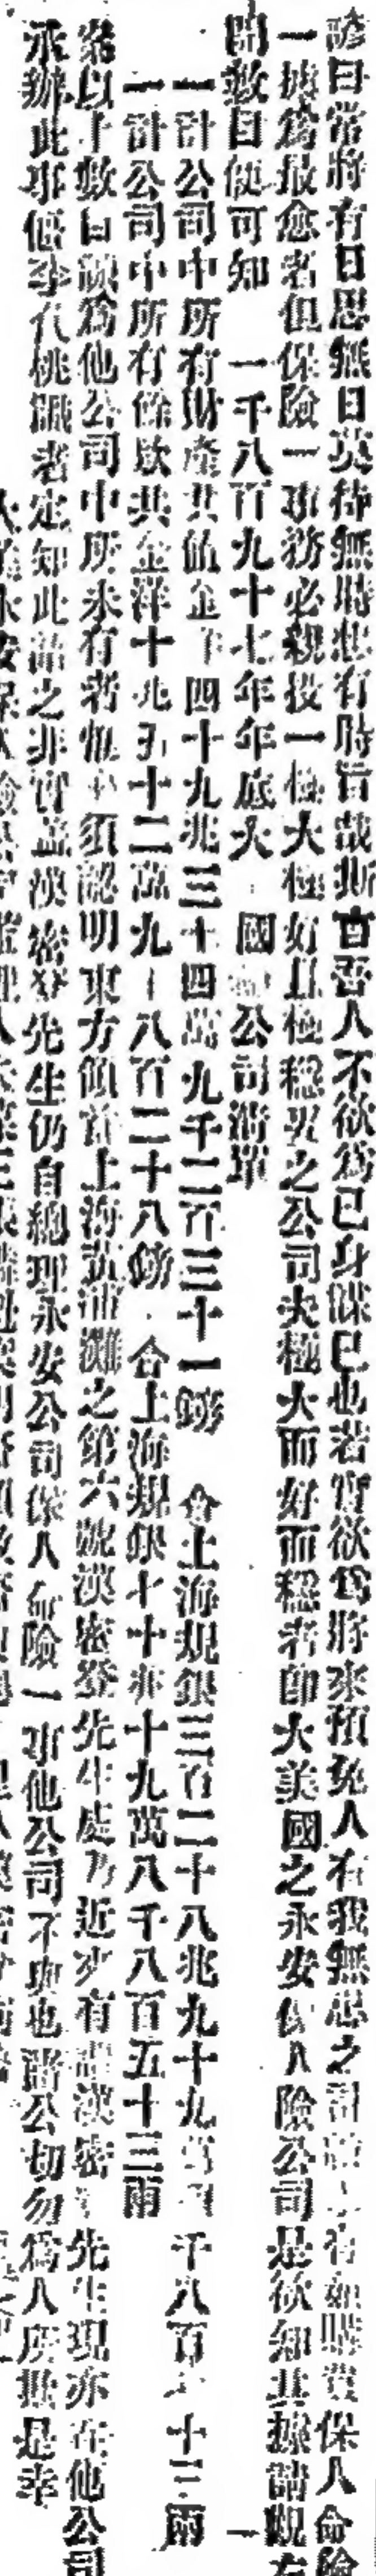 諺曰常將有日思無日莫待無時想有時旨哉斯言吾人不欲爲己身謀已也若實欲爲將來預免人有我無憑之計有如購買保人命險
一擲爲最愈者但保險一事務必親投一極大極好且極穩安之公司夫極大而好而穩者即大美國之永安保人險公司是欲知其據請觀左
開數目便可知 一千八百九十七年年底大 國 公司清單
一計公司中所有財產共値金 四十九兆三十四萬九千二百三十一鎊 合上海規銀三百二十八兆九十九萬 千八百 十三兩
一計公司中所有餘欵共金洋十兆五十二萬九千八百二十八鎊 合上海規銀七十兆十九萬八千八百五十三兩
案以上數目頗爲他公司中所未有者惟 須認明東方 上海黃浦灘之第六號漢密登先生處乃近 有 漢密 先生現亦在他公司
承辦此事僵李代桃 者定知此 之非實蓋漢密登先生仍自總理永安公司保人命險一事他公司不與也諸公切勿爲人所欺是幸